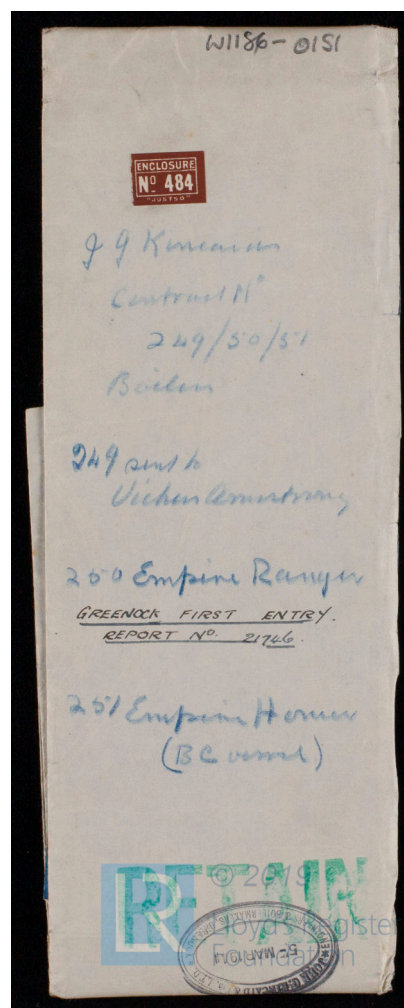 W1186-0151
ENCLOSURE
No 484
"JUSTSO"
J G Kincaids
Contract No
249/50/51
Boilers
249 sent to
Vickers Armstrong
250 Empire Ranger
GREENOCK FIRST ENTRY.
REPORT No. 21746.
251 Empire Homer
(BC vessel)
RETAIN
© 2019
Lloyd's Register
Foundation